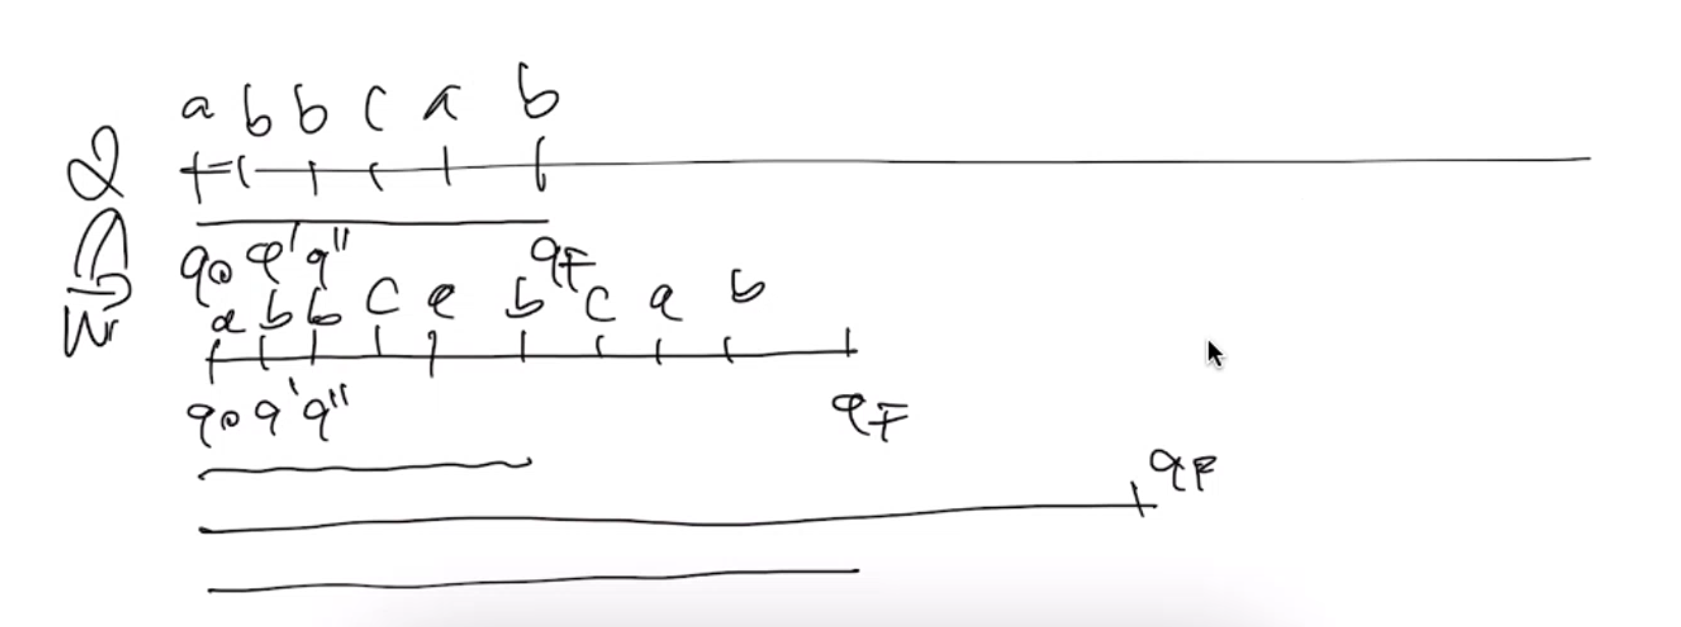 a b b c a b
q0 q' q'' qF
a b b c a b c a b
q0 q' q'' qF
qF